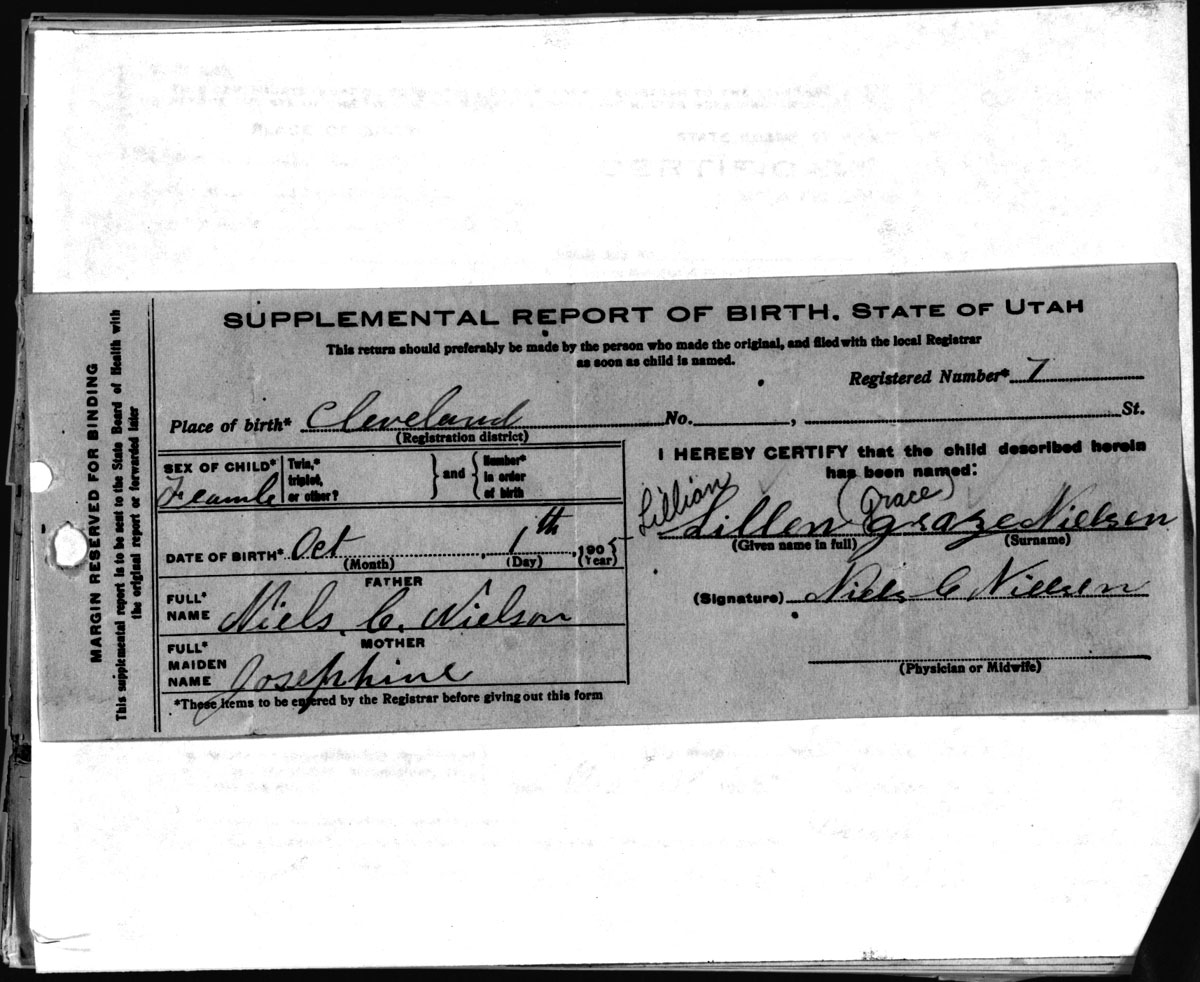 SUPPLEMENTAL REPORT OF BIRTH. STATE OF UTAH
This return should preferably be made by the person who made the original, and filed with the local Registrar
as soon as child is named.
Registered Number* 7
Place of birth* Cleveland No. , St.
(Registration district)
SEX OF CHILD* Feamle
Twin,* triplet, or other? } and { Number* in order of birth
DATE OF BIRTH* Oct , 1th , 190
(Month) (Day) (Year)
FATHER
FULL* NAME Niels. C. Nielson
MOTHER
FULL* MAIDEN NAME Josephine
*These items to be entered by the Registrar before giving out this form
I HEREBY CERTIFY that the child described herein
has been named:
Lillian (Grace)
Lillen graze Nielsen
(Given name in full) (Surname)
(Signature) Niels C Nielsen
(Physician or Midwife)
MARGIN RESERVED FOR BINDING
This supplemental report is to be sent to the State Board of Health with
the original report or forwarded later